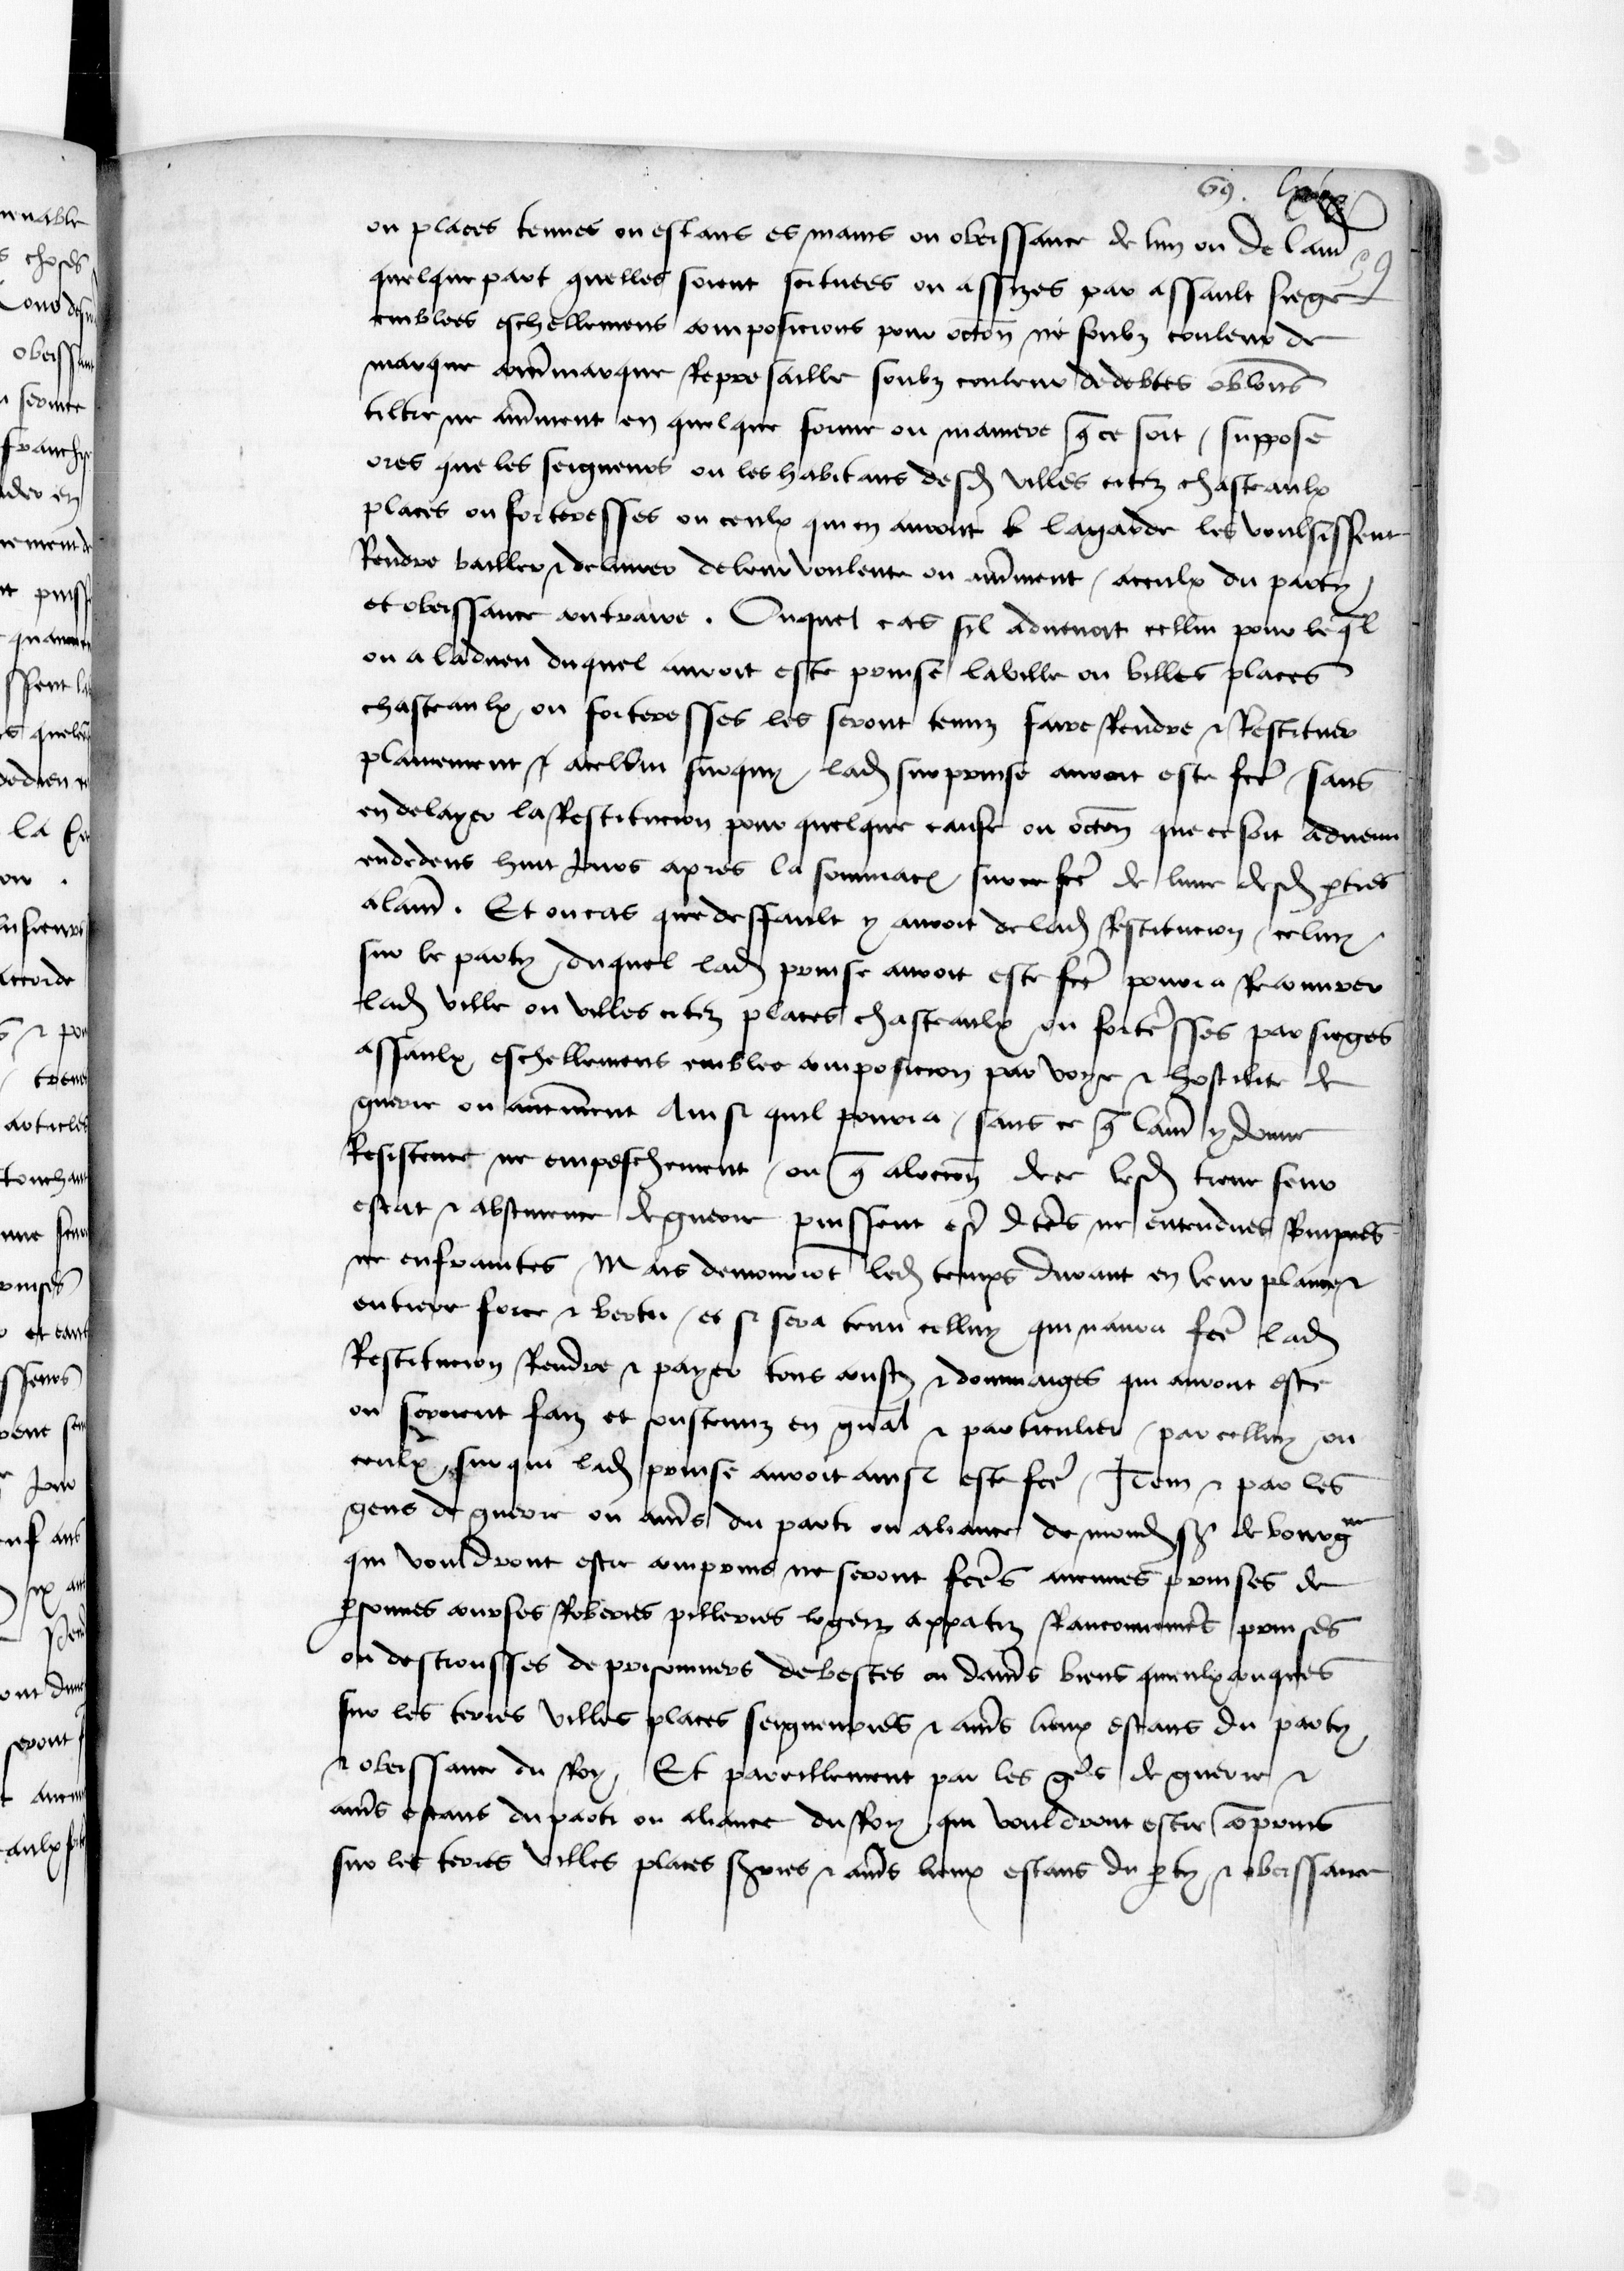 69.
ou places tenues ou estans es mains ou obeissance de lun ou de laut̃
quelque part quelles soient scituees ou assizes par assault siege
emblees eschellemens composicions pour occõn ne soubz couleur de
marque cont̃marque Represaille soubz couleur dedebtes obliõns
tiltre ne aut̃ment en quelque forme ou maniere q̃ ce soit / suppose
ores que les seigneurs ou les habitans desd villes citez chasteaulx
places ou forteresses ou ceulx qui en auront lagarde les voulsissent
Rendre bailler & deliurer deleur voulente ou aut̃ment / aceulx du party
et obeissance contraire . Ouquel cas sil aduenoit cellui pour leq̃l
ou a laduen duquel auroit este prinse laville ou villes places
chasteaulx ou forteresses les seront tenuz faire Rendre & Restituer
plainement acellui surquy lad surprinse auroit este fcẽ sans
en delayer la Restitucion pour quelque cause ou occõn que ce soit aduenu
endedens huit Jours apres la sommacõ surce fcẽ de lune desd p̃ties
alaut̃ . Et oucas que deffault y auroit delad Restitucion celuy
sur le party duquel lad prinse auroit este fcẽ pourra Recouurer
lad ville ou villes citez places chasteaulx ou fortẽsses par sieges
assaulx eschellemens emblee composicion par voye & hostilite de
guerre ou autrem̃ent Ainsi quil pourra / sans ce q̃ laut̃ y donne
Resistence ne empeschement / ou q̃ alocciõn dece lesd treue seur
estat & abstinence deguerre puissent est̃ d tẽs ne entendues Rompues
ne enfraintes Mais demourrõt led temps durant en leur plaine &
entiere force & vertu / et si sera tenu celluy qui naura fcẽ lad
Restitucion Rendre & payer tous coustz & dommaiges qui auront este
ou seroient faiz et soustenuz en gñal & particulier / par celluy ou
ceulx sur qui lad prinse auroit ainsi este fcẽ / Item & par les
gens de guerre ou aut̃s du parti ou aliance de mond sr̃ de bourgne
qui vouldront estre comprins ne seront fcẽs aucunes prinses de
p̃sonnes courses Roberies pilleries logeiz appatiz Ranconnemẽs prinses
ou destrousses de prisonniers debestes ou daut̃s biens quelxconques
sur les terres villes places seigneuries & aut̃s lieux estans du party
& obeissance du Roy Et pareillement par les gẽs de guerre &
aut̃s estans du parti ou aliance du Roy qui vouldront estre cõprins
sur les terres villes places sr̃ries & aut̃s lieux estans du p̃ty & obeissance